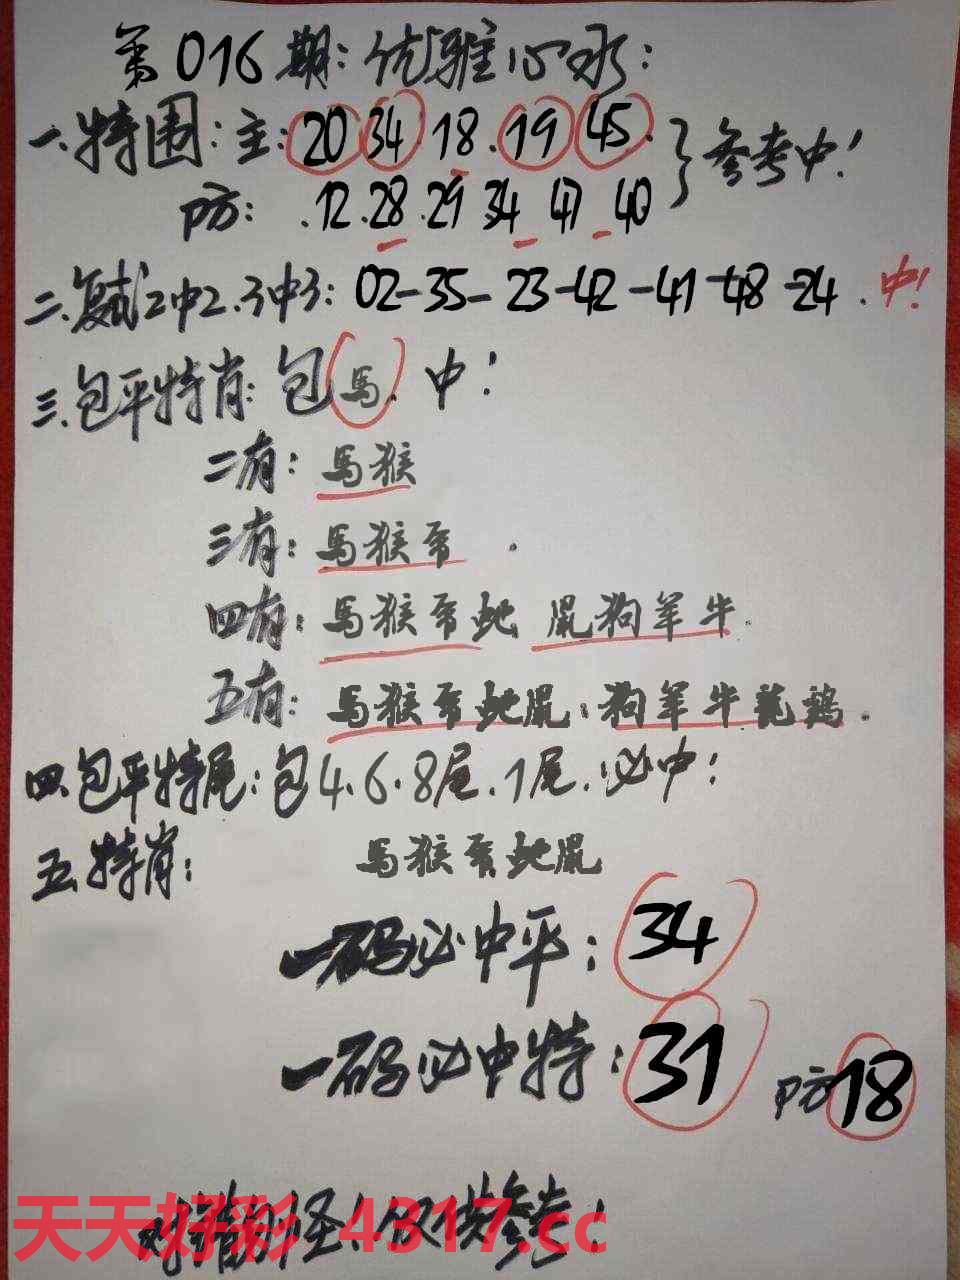 第016期:优雅心水:
一.特围:主:20 34.18.19 45.}参考中!
防:.12.28.29 34 47 40
二.复式2中2.3中3:02-35-23-42-41-48-24.中!
三.包平特肖:包馬.中!
二有:馬猴
三有:馬猴兔.
四有:馬猴兔蛇 鼠狗羊牛.
五有:馬猴兔蛇鼠:狗羊牛龍鷄.
四.包平特尾:包4.6.8尾.1尾.必中!
五.特肖:馬猴兔蛇鼠
一码必中平:34
一码必中特:31 防18
对错勿怪!仅供参考!
天天好彩 4317.cc